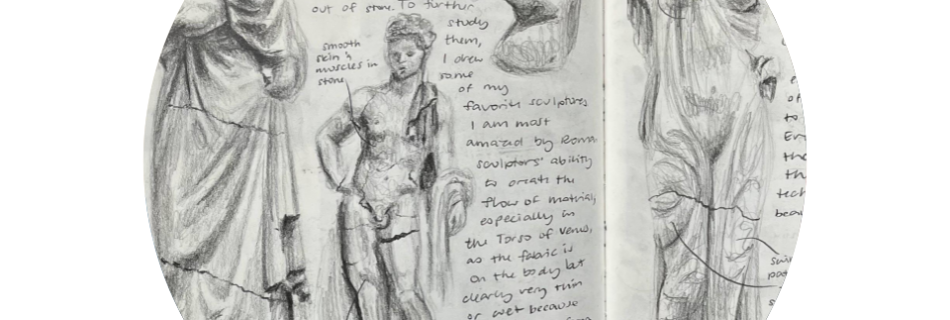 out of stone. To further
study
them,
I drew
some
of my
favorite sculptures
I am most
amazed by Roman
sculptors' ability
to create the
flow of material,
especially in
the Torso of Venus,
as the fabric is
on the body but
clearly very thin
or wet because
smooth
skin &
muscles in
stone
of
to
the
beau